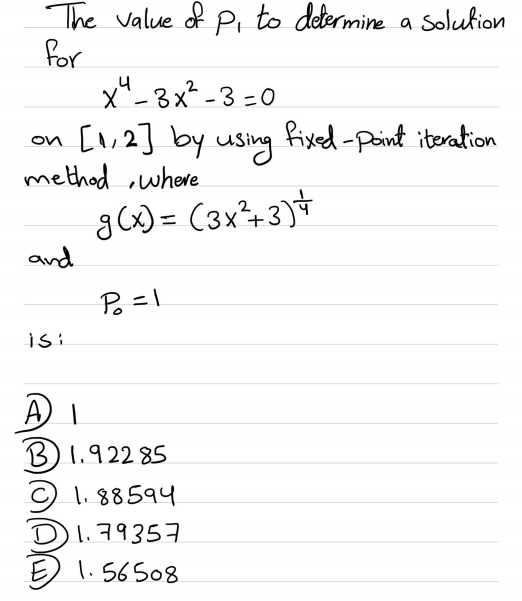 The value of P₁ to determine a solution
for
x⁴ - 3x² - 3 = 0
on [1,2] by using fixed-point iteration
method, where
g(x) = (3x²+3)^¼
and
P₀ = 1
is:
A) 1
B) 1.92285
C) 1.88594
D) 1.79357
E) 1.56508